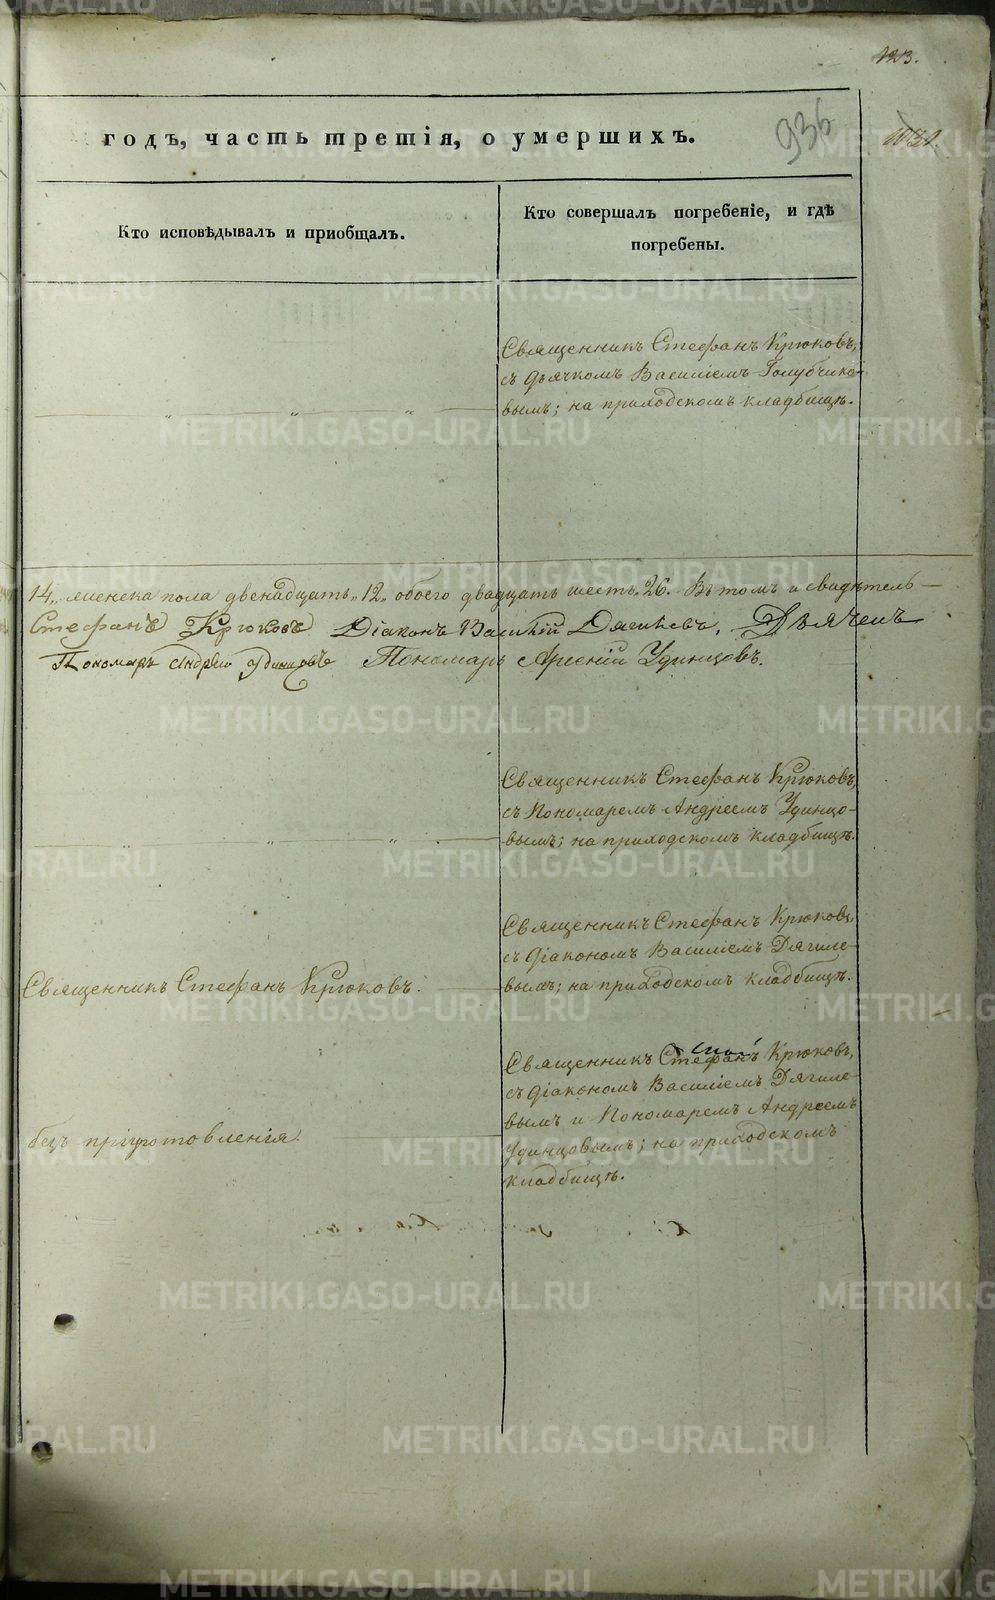 123.
годъ, часть третія, о умершихъ.
936
Кто исповѣдывалъ и приобщалъ.
Кто совершалъ погребеніе, и гдѣ
погребены.
Священникъ Стефанъ Крюковъ,
съ дьячкомъ Василіемъ Голубчико-
вымъ; на приходскомъ кладбищѣ.
14, женска пола двенадцать, 12, обоего двадцать шесть, 26. Въ томъ и свидѣтель-
Стефанъ Крюковъ Діаконъ Василій Дягилевъ, Дьячекъ
Пономарь Андрей Удинцовъ Пономарь Арсеній Удинцовъ.
Священникъ Стефанъ Крюковъ,
съ Пономаремъ Андреемъ Удинцо-
вымъ; на приходскомъ кладбищѣ.
Священникъ Стефанъ Крюковъ,
съ діакономъ Василіемъ Дягиле-
вымъ; на приходскомъ кладбищѣ.
Священникъ Стефанъ Крюковъ.
Священникъ Стефанъ Крюковъ,
съ діакономъ Василіемъ Дягиле-
вымъ и Пономаремъ Андреемъ
Удинцовымъ; на приходскомъ
кладбищѣ.
безъ пріуготовленія.
METRIKI.GASO-URAL.RU